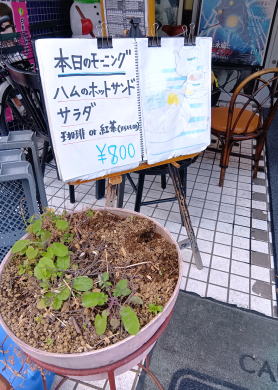 本日のモーニング
ハムのホットサンド
サラダ
珈琲 or 紅茶
¥800
CA